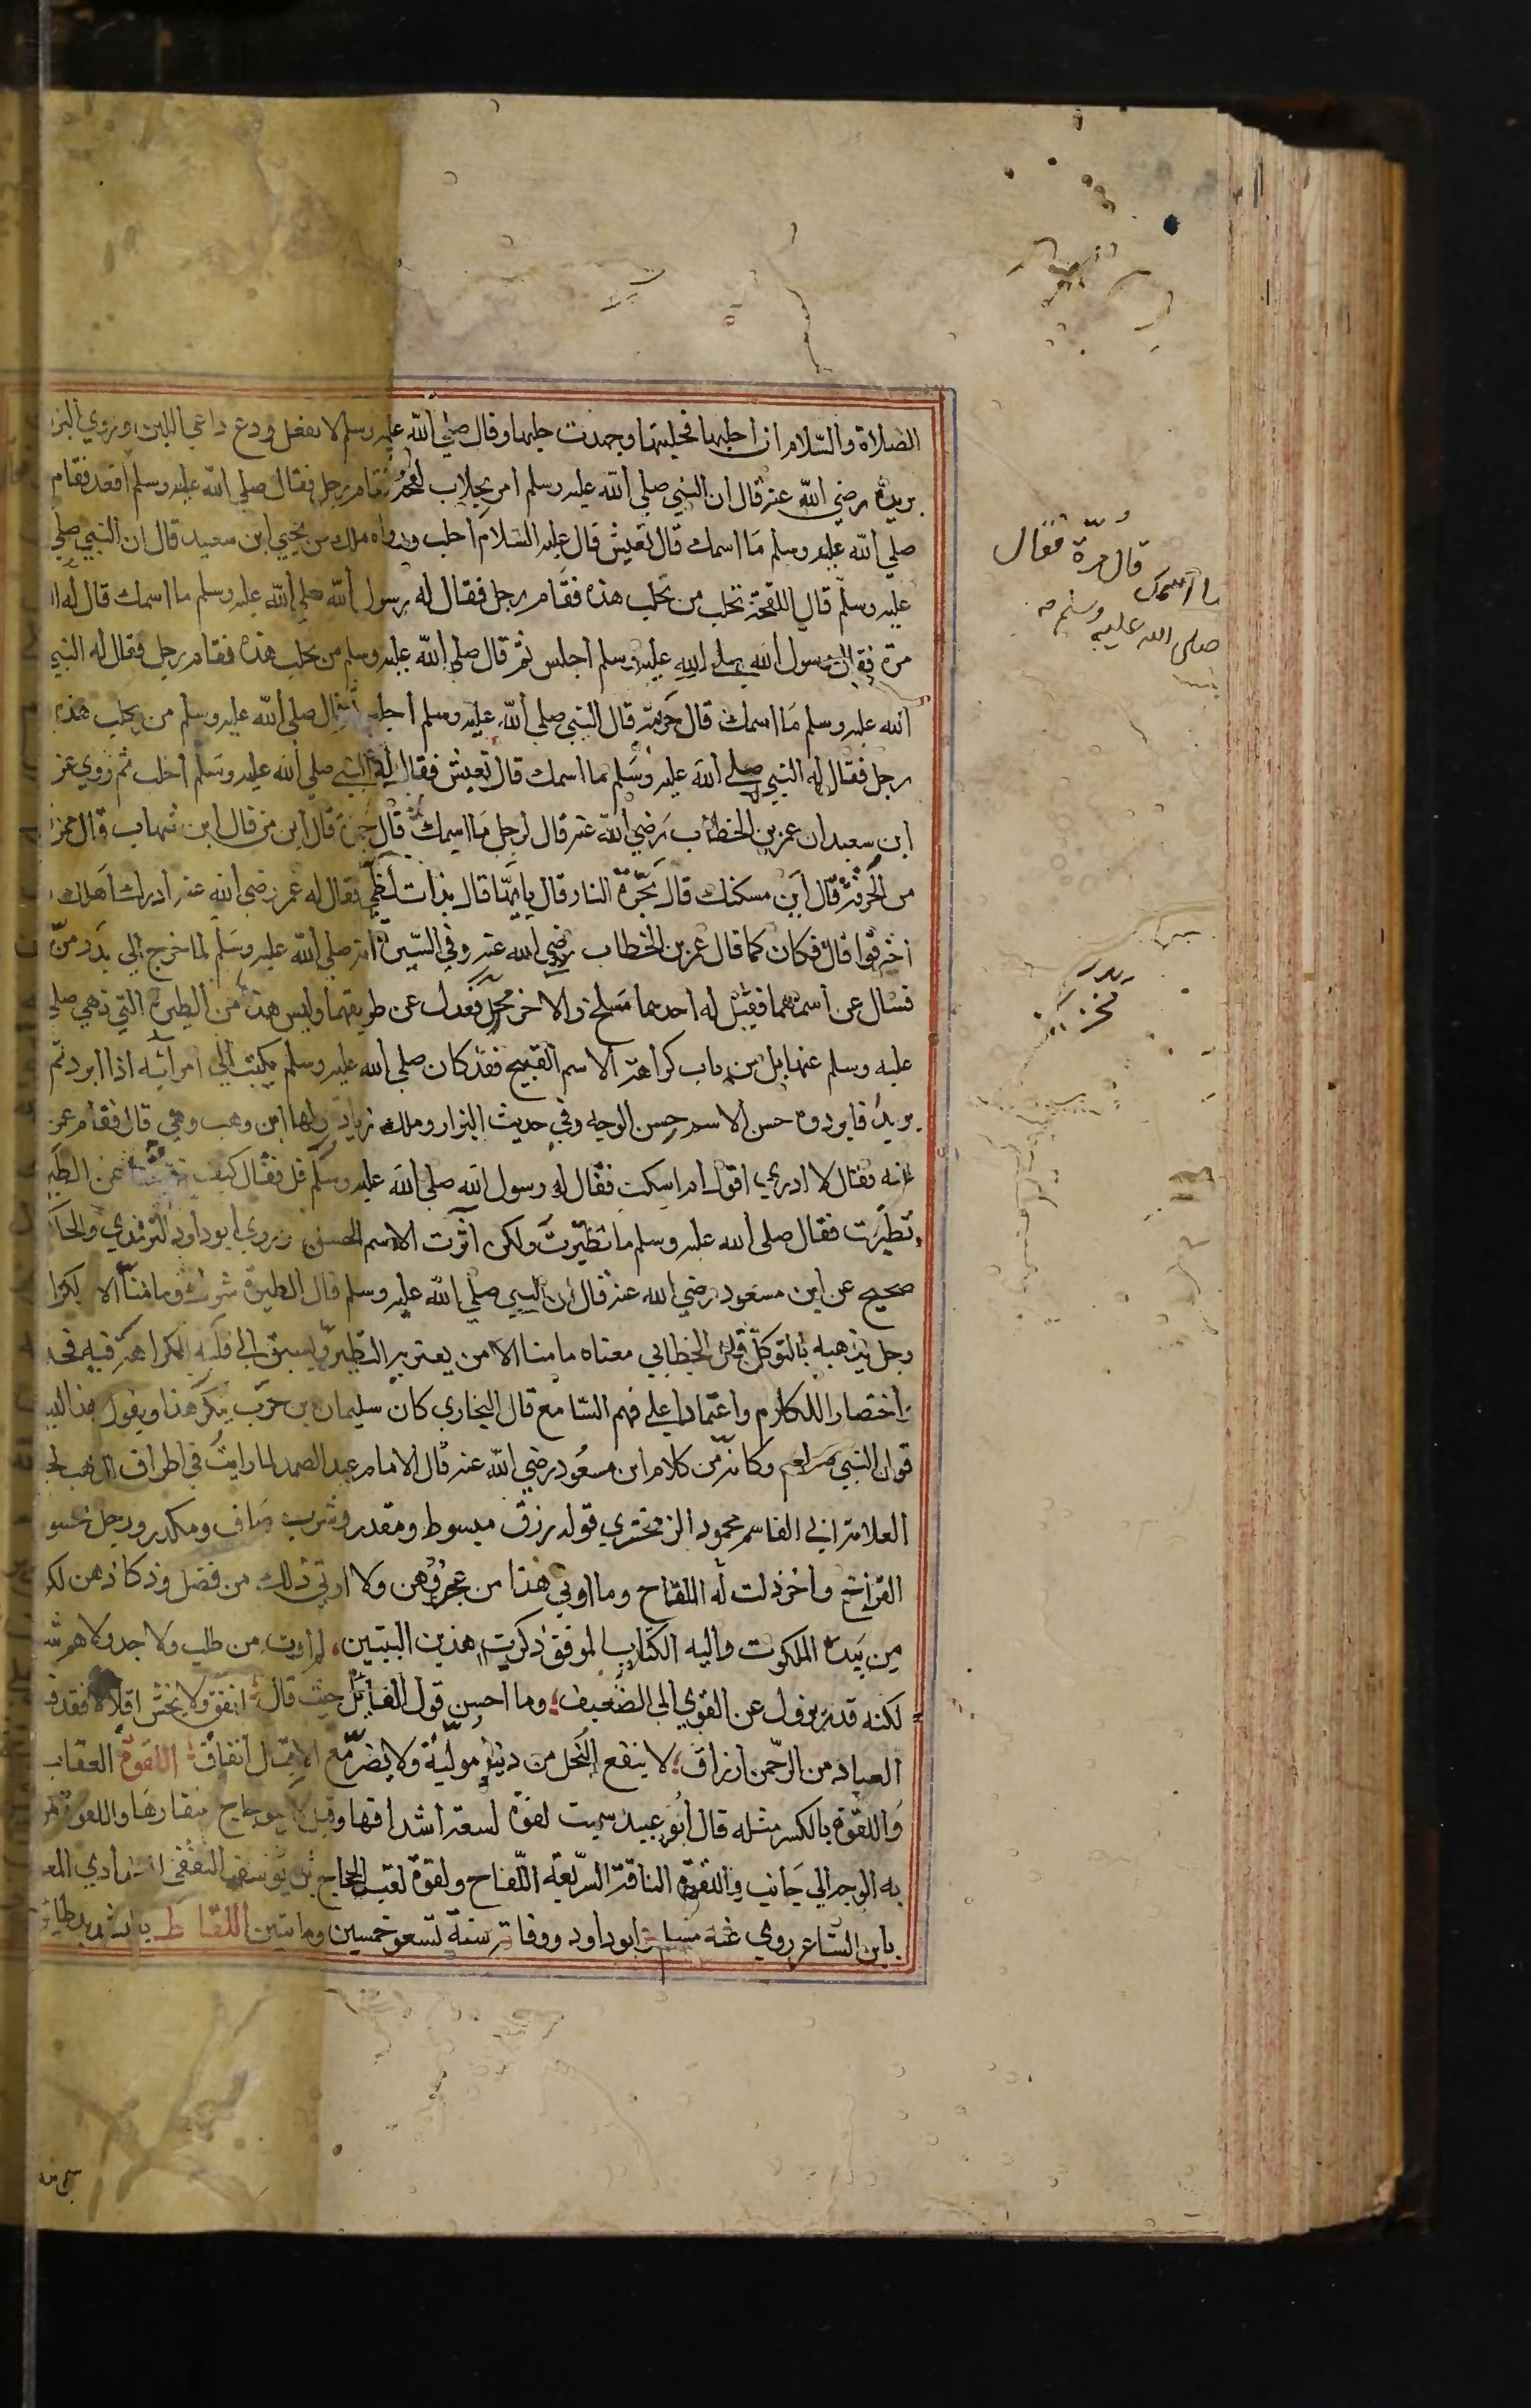 الصلاة والسلام ان احلبها فحلبتها وجهدت حلبها وقال صلي الله عليه وسلم لا تفعل ودع داعي اللبن وروي البزا
بريدة رضي الله عنه قال ان النبي صلي الله عليه وسلم امر بحلاب لقحة فقام رجل فقال صلي الله عليه وسلم اقعد فقام
صلي الله عليه وسلم ما اسمك قال يعيش قال عليه السلام احلب ورواه ملك من يحيي ابن سعيد قال ان النبي صلي
عليه وسلم قال للقحة تحلب من يحلب هذه فقام رجل فقال له رسول الله صلي الله عليه وسلم ما اسمك قال له ال
مرة فقال رسول الله صلي الله عليه وسلم اجلس ثم قال صلي الله عليه وسلم من يحلب هذه فقام رجل فقال له النبي
الله عليه وسلم ما اسمك قال حربة قال النبي صلي الله عليه وسلم اجلس ثم قال صلي الله عليه وسلم من يحلب هذه
رجل فقال له النبي صلي الله عليه وسلم ما اسمك قال يعيش فقال له النبي صلي الله عليه وسلم احلب ثم روي عن
ابن سعيد ان عمر بن الخطاب رضي الله عنه قال لرجل ما اسمك قال جمرة قال ابن من قال ابن شهاب قال ممن
من الحرقة قال اين مسكنك قال بحرة النار قال بايها قال بذات لظي فقال له عمر رضي الله عنه ادرك اهلك
احترقوا قال فكان كما قال عمر بن الخطاب رضي الله عنه وفي السيرة انه صلي الله عليه وسلم لما خرج الي بدر مر
فسال عن اسمهما فقيل له احدهما مسلح والاخر مخري فعدل عن طريقهما وليس هذا من الطيرة التي نهي صلي
عليه وسلم عنها بل من باب كراهة الاسم القبيح فقد كان صلي الله عليه وسلم يكتب الي امرائه اذا ابردتم
بريدا فابردوه حسن الاسم حسن الوجه وفي حديث البزار وملك زيادة رواها ابن وهب وهي قال فقام عمر
عنه فقال لا ادري اقول ام اسكت فقال له رسول الله صلي الله عليه وسلم قل فقال كيف نهيتنا عن الطير
تطيرت فقال صلي الله عليه وسلم ما تطيرت ولكن آثرت الاسم الحسن وروي ابو داود الترمذي والحاك
صحيح عن ابن مسعود رضي الله عنه قال ان النبي صلي الله عليه وسلم قال الطيرة شرك وما منا الا
وجل يذهبه بالتوكل قال الخطابي معناه ما منا الا من يعتريه التطير ويسبق الي قلبه الكراهة فيه فحذ
اختصارا للكلام واعتمادا علي فهم السامع قال البخاري كان سليمان بن حرب ينكر هذا ويقول هذا ليس
قول النبي صلعم وكانه من كلام ابن مسعود رضي الله عنه قال الامام عبد الصمد لما رايت في اطراف الذهب
العلامة ابي القاسم محمود الزمخشري قوله رزق مبسوط ومقدر وشرب صاف ومكدر ورجل
القراح واخر ذلت له اللقاح وما اوتي هذا من عجز وهن ولا اوتي ذلك من فضل وذكا ذهن لكن
من بيده الملكوت واليه الكتاب الموفق ذكرت هذين البيتين لم اوت من طلب ولا جد ولا هم
لكنه قدر يزول عن القوي الي الضعيف وما احسن قول القائل حيث قال انفق ولا تخش اقلالا فقد
العباد من الرحمن ارزاق لا ينفع البخل من دنيا مولية ولا يضر مع الاقبال انفاق اللقوة العقاب
واللقوة بالكسر مثله قال ابو عبيد سميت لقوة لسعة اشداقها وقيل لاعوجاج منقارها واللقوة
به الوجه الي جانب واللقوة الناقة السريعة اللقاح ولقوة لقب الحجاج بن يوسف الثقفي
بابن الشاعر روي عنه مسلم وابو داود ووفاته سنة تسع وخمسين ومايتين اللقاط
قال مرة فقال
ما اسمك
صلى الله عليه وسلم
مخري